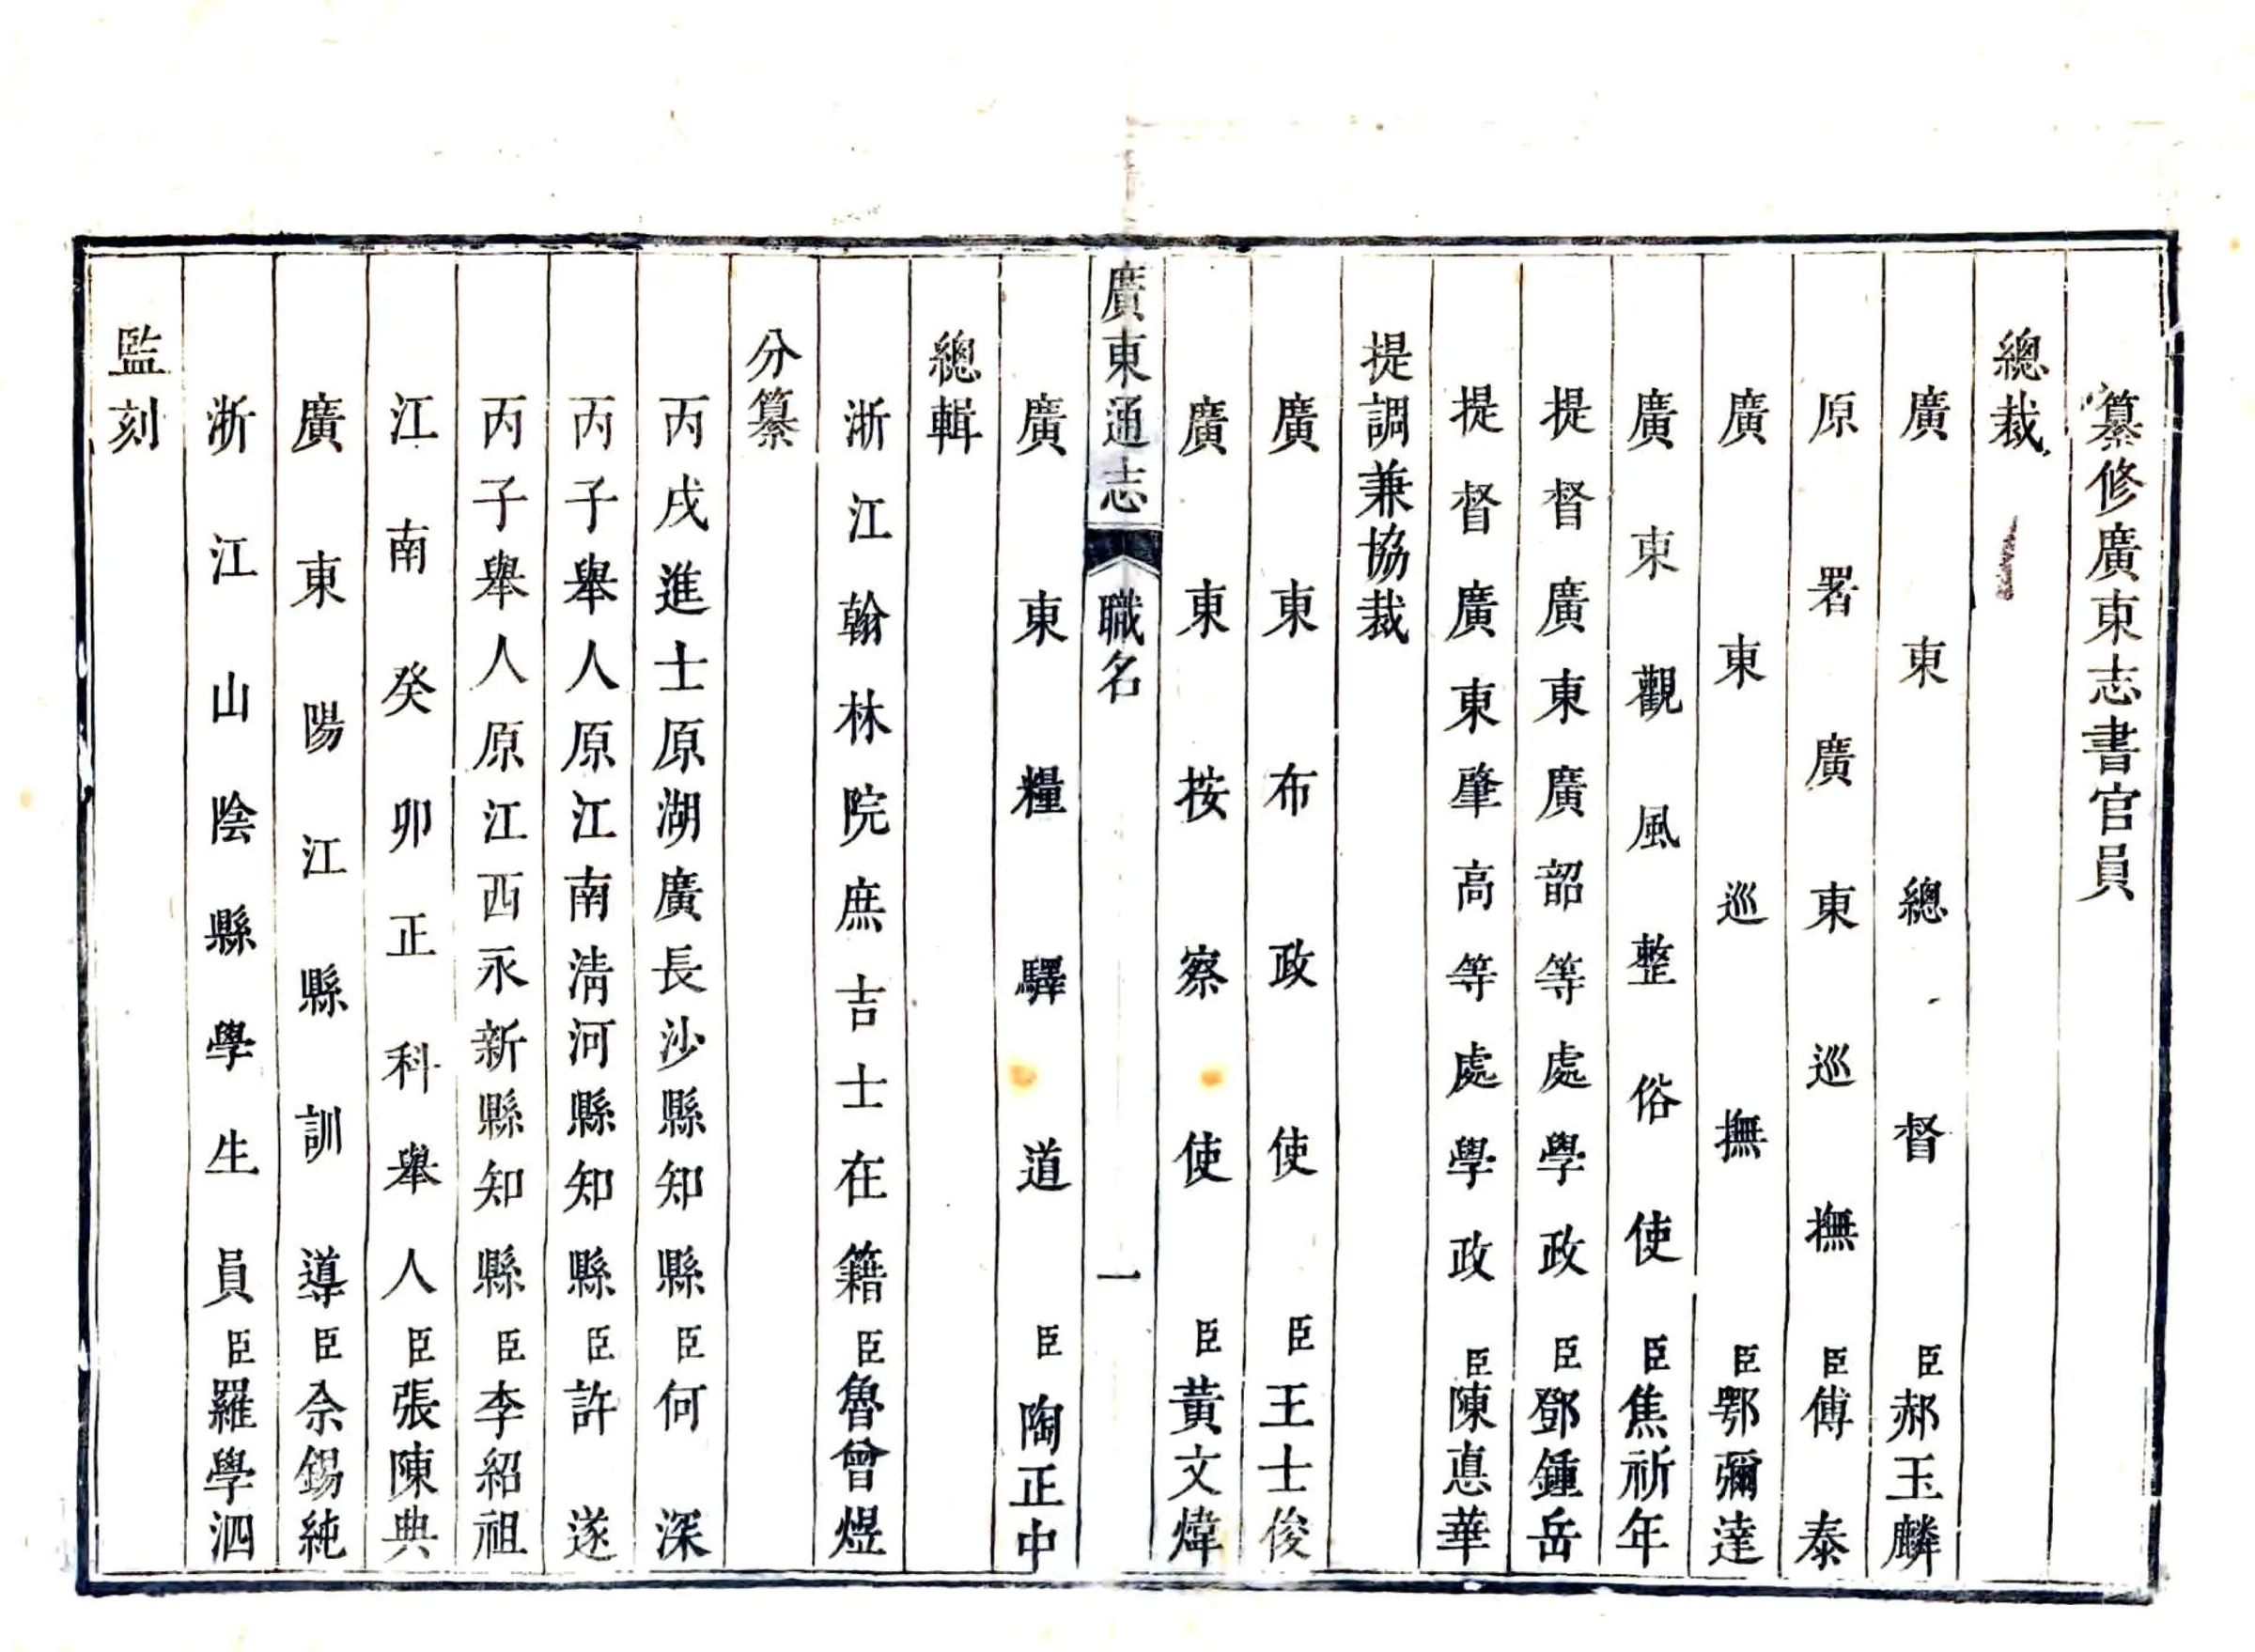 纂修廣東志書官員
總裁
廣東總督臣郝玉麟
原署廣東巡撫臣傅泰
廣東巡撫臣鄂彌達
廣東觀風整俗使臣焦祈年
提督廣東廣韶等處學政臣鄧鍾岳
提督廣東肇高等處學政臣陳悳華
提調兼協裁
廣東布政使臣王士俊
廣東按察使臣黃文煒
廣東通志 職名 一
廣東糧驛道臣陶正中
總輯
浙江翰林院庶吉士在籍臣魯曾煜
分纂
丙戌進士原湖廣長沙縣知縣臣何深
丙子舉人原江南清河縣知縣臣許遂
丙子舉人原江西永新縣知縣臣李紹祖
江南癸卯正科舉人臣張陳典
廣東陽江縣訓導臣佘錫純
浙江山陰縣學生員臣羅學泗
監刻